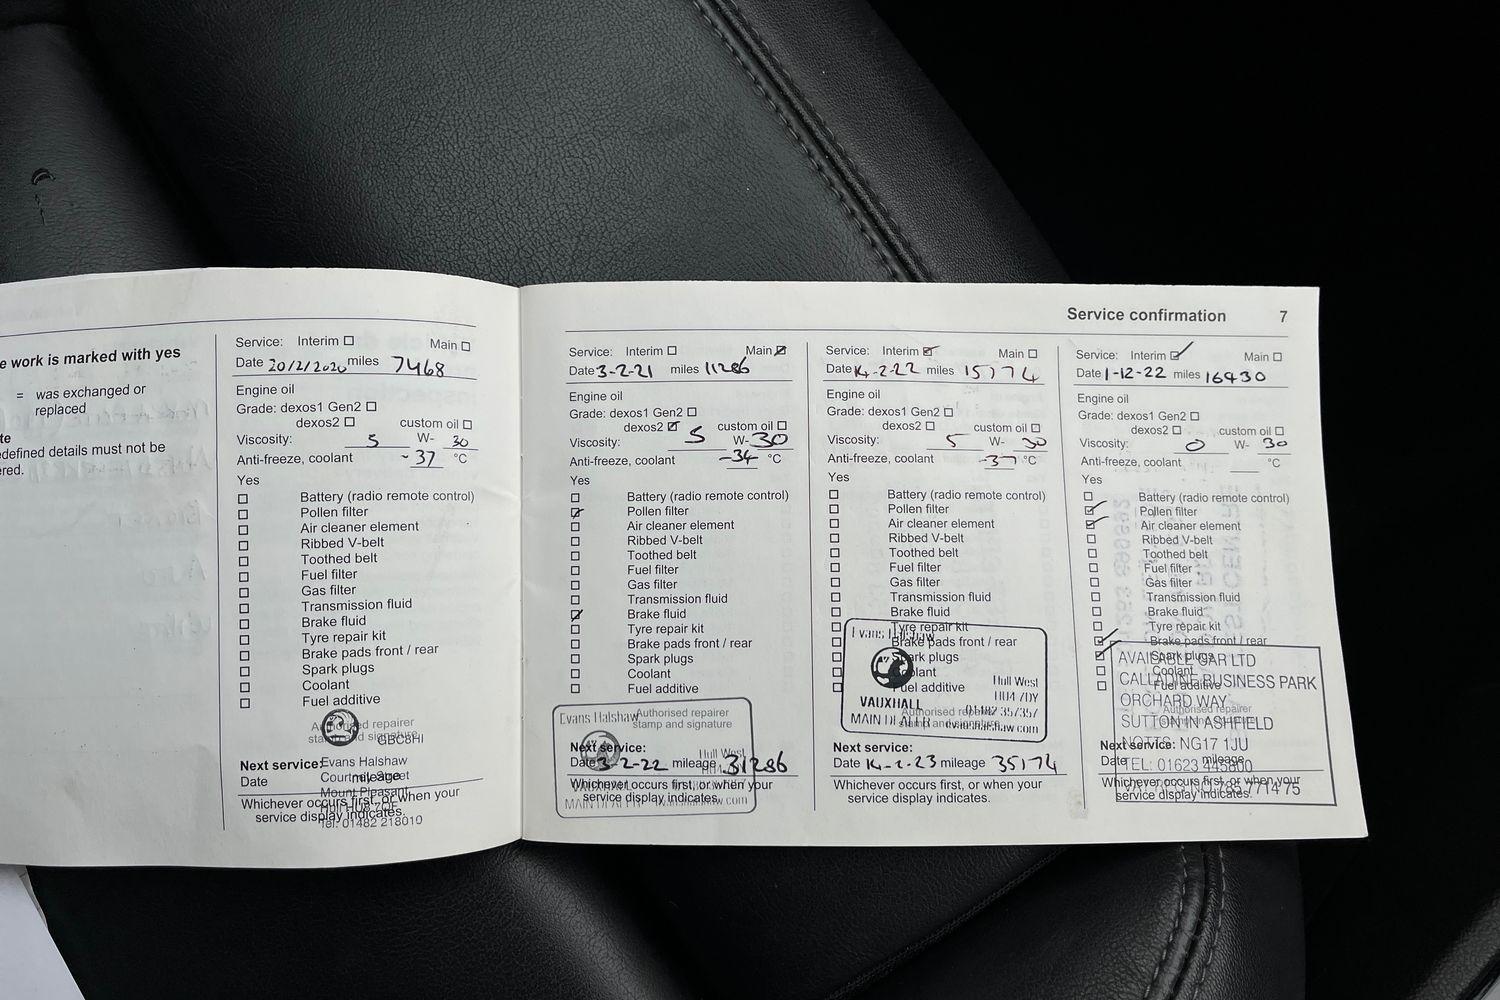 e work is marked with yes
= was exchanged or
replaced
te
edefined details must not be
ered.
Service: Interim ☐ Main ☐
Date 20/2/2020 miles 7468
Engine oil
Grade: dexos1 Gen2 ☐
dexos2 ☐ custom oil ☐
Viscosity: 5 W- 30
Anti-freeze, coolant -37 °C
Yes
☐ Battery (radio remote control)
☐ Pollen filter
☐ Air cleaner element
☐ Ribbed V-belt
☐ Toothed belt
☐ Fuel filter
☐ Gas filter
☐ Transmission fluid
☐ Brake fluid
☐ Tyre repair kit
☐ Brake pads front / rear
☐ Spark plugs
☐ Coolant
☐ Fuel additive
Authorised repairer
stamp and signature
GBC8HI
Evans Halshaw
Courtney Street
Mount Pleasant
Hull HU8 7QF
Tel: 01482 218010
Next service:
Date mileage
Whichever occurs first, or when your
service display indicates.
Service confirmation 7
Service: Interim ☐ Main ☑
Date 3-2-21 miles 11286
Engine oil
Grade: dexos1 Gen2 ☐
dexos2 ☑ custom oil ☐
Viscosity: 5 W- 30
Anti-freeze, coolant -34 °C
Yes
☐ Battery (radio remote control)
☑ Pollen filter
☐ Air cleaner element
☐ Ribbed V-belt
☐ Toothed belt
☐ Fuel filter
☐ Gas filter
☐ Transmission fluid
☑ Brake fluid
☐ Tyre repair kit
☐ Brake pads front / rear
☐ Spark plugs
☐ Coolant
☐ Fuel additive
Authorised repairer
stamp and signature
Evans Halshaw
Hull West
MAIN DEALER evanshalshaw.com
Next service:
Date 3-2-22 mileage 31286
Whichever occurs first, or when your
service display indicates.
Service: Interim ☑ Main ☐
Date 14-2-22 miles 15174
Engine oil
Grade: dexos1 Gen2 ☐
dexos2 ☐ custom oil ☐
Viscosity: 5 W- 30
Anti-freeze, coolant -37 °C
Yes
☐ Battery (radio remote control)
☐ Pollen filter
☐ Air cleaner element
☐ Ribbed V-belt
☐ Toothed belt
☐ Fuel filter
☐ Gas filter
☐ Transmission fluid
☐ Brake fluid
☐ Tyre repair kit
☐ Brake pads front / rear
☐ Spark plugs
☐ Coolant
☐ Fuel additive
Authorised repairer
stamp and signature
Evans Halshaw
Hull West
HU4 7DY
VAUXHALL 01482 357357
MAIN DEALER evanshalshaw.com
Next service:
Date 14-2-23 mileage 35174
Whichever occurs first, or when your
service display indicates.
Service: Interim ☑ Main ☐
Date 1-12-22 miles 16430
Engine oil
Grade: dexos1 Gen2 ☐
dexos2 ☐ custom oil ☐
Viscosity: 0 W- 30
Anti-freeze, coolant °C
Yes
☐ Battery (radio remote control)
☑ Pollen filter
☑ Air cleaner element
☐ Ribbed V-belt
☐ Toothed belt
☐ Fuel filter
☐ Gas filter
☐ Transmission fluid
☐ Brake fluid
☐ Tyre repair kit
☑ Brake pads front / rear
☑ Spark plugs
☐ Coolant
☐ Fuel additive
Authorised repairer
AVAILABLE CAR LTD
CALLADINE BUSINESS PARK
ORCHARD WAY
SUTTON IN ASHFIELD
NOTTS NG17 1JU
TEL: 01623 445800
785 7714 75
Next service:
Date mileage
Whichever occurs first, or when your
service display indicates.